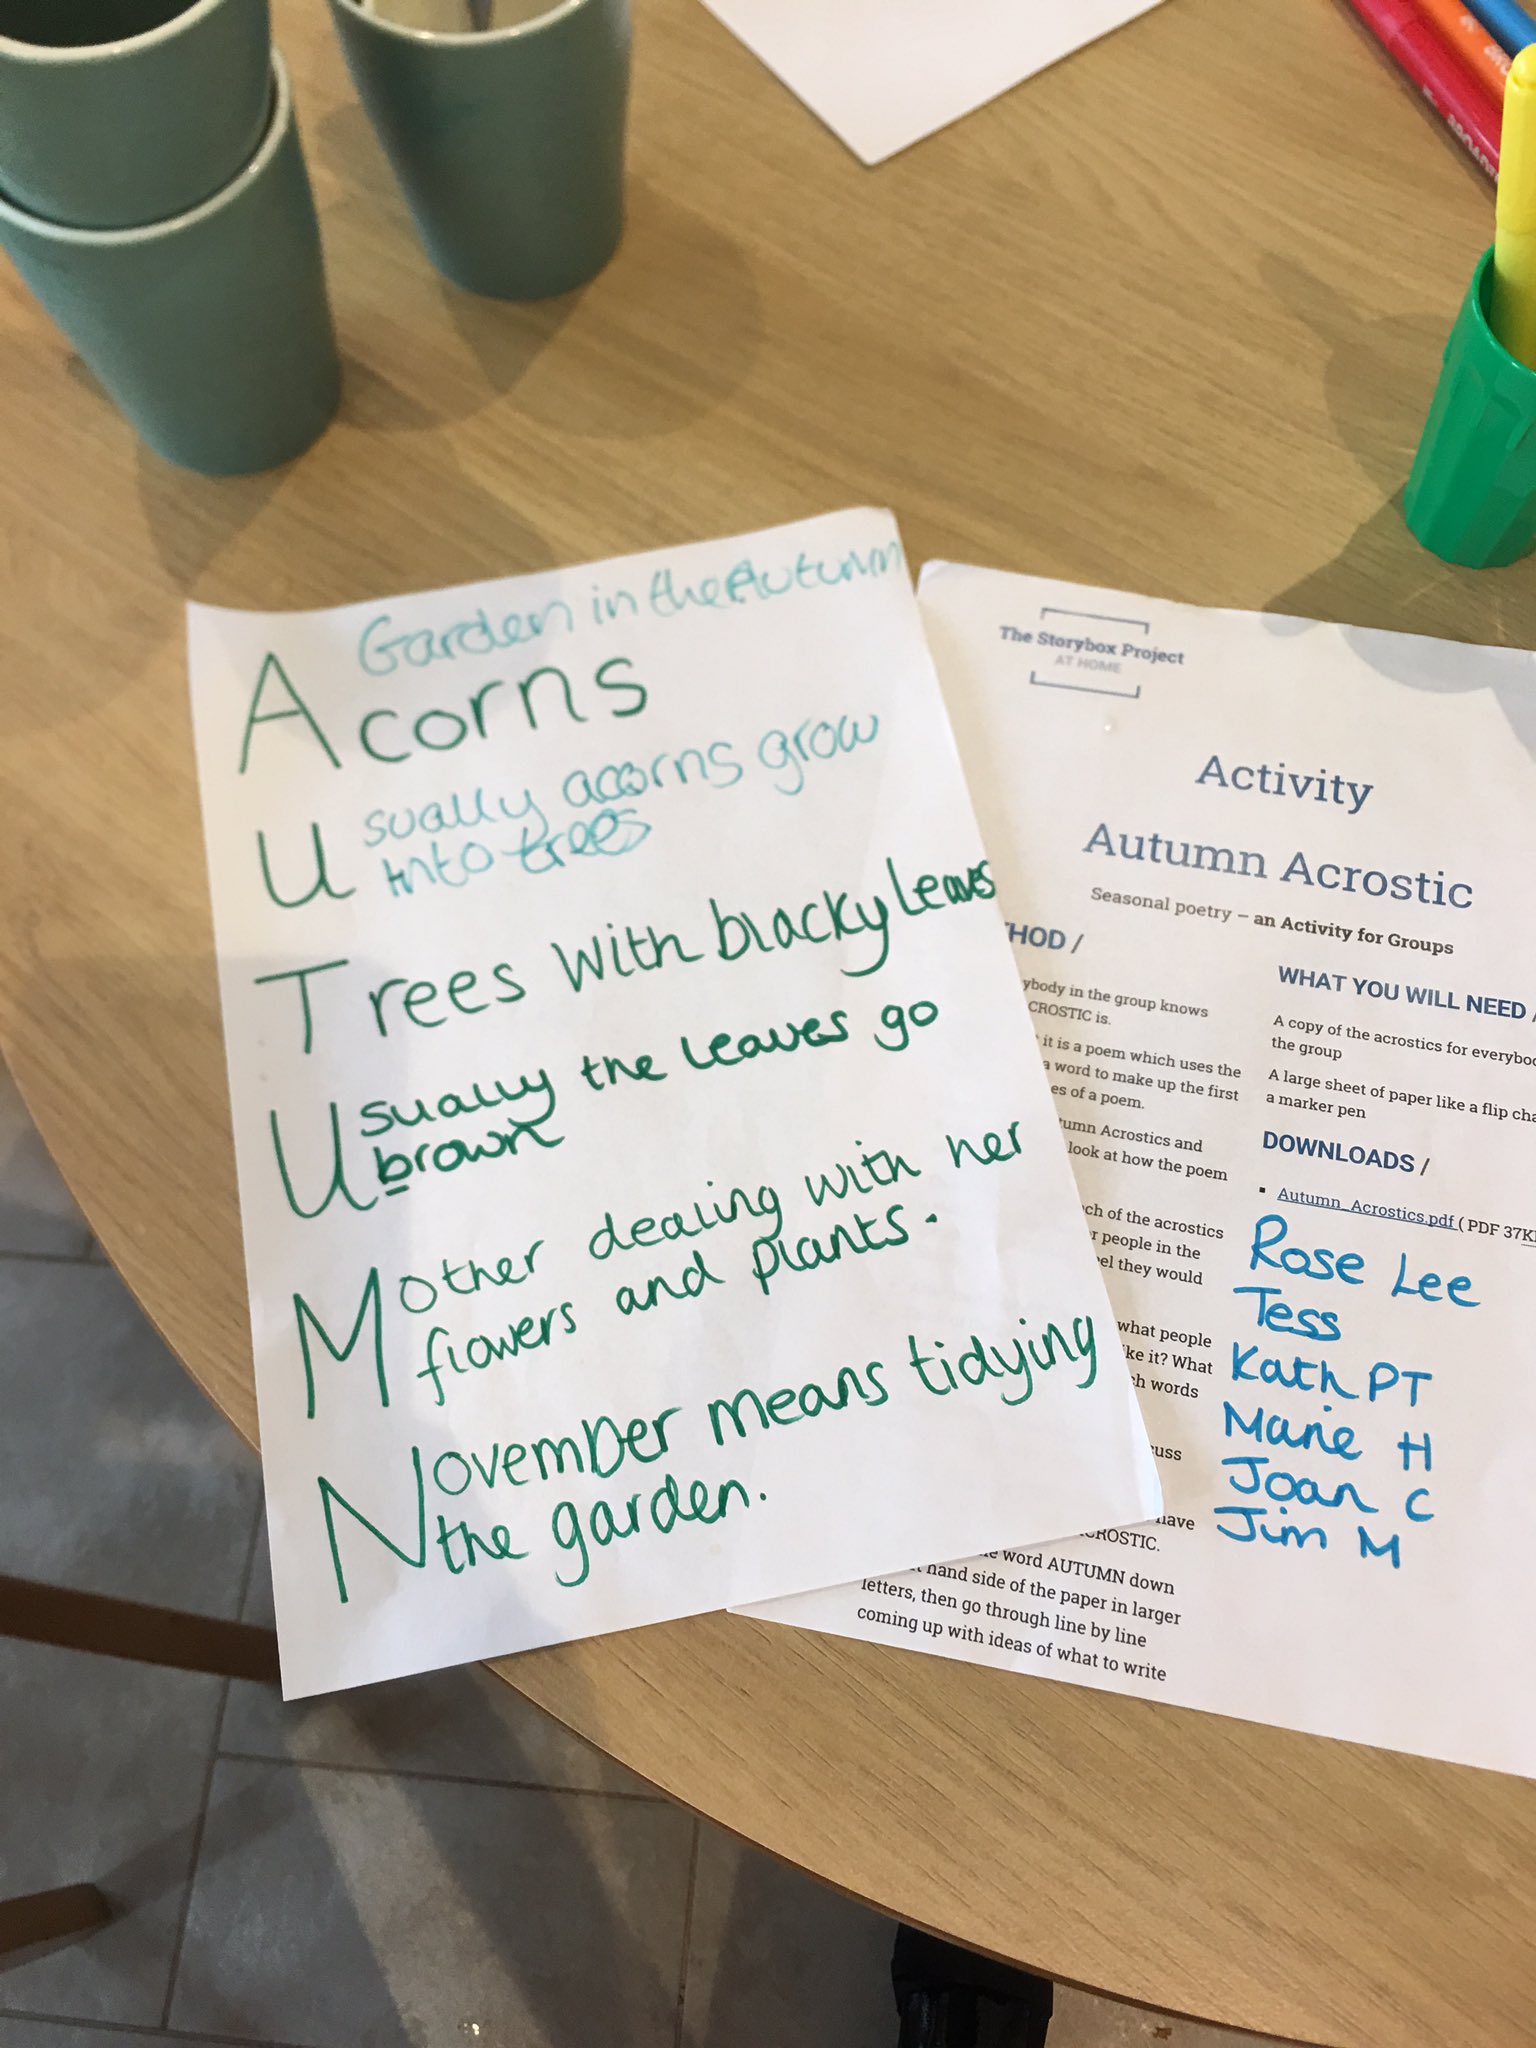 Garden in the Autumn
Acorns
Usually acorns grow
into trees
Trees with blacky Leaves
Usually the leaves go
brown
Mother dealing with her
flowers and plants.
November means tidying
the garden.
The Storybox Project
AT HOME
Activity
Autumn Acrostic
Seasonal poetry – an Activity for Groups
THOD /
ybody in the group knows
CROSTIC is.
it is a poem which uses the
a word to make up the first
es of a poem.
tumn Acrostics and
look at how the poem
ch of the acrostics
r people in the
el they would
what people
ke it? What
ch words
cuss
have
CROSTIC.
e word AUTUMN down
hand side of the paper in larger
letters, then go through line by line
coming up with ideas of what to write
WHAT YOU WILL NEED /
A copy of the acrostics for everybo
the group
A large sheet of paper like a flip cha
a marker pen
DOWNLOADS /
Autumn_Acrostics.pdf ( PDF 37K
Rose Lee
Tess
Kath PT
Marie H
Joan C
Jim M